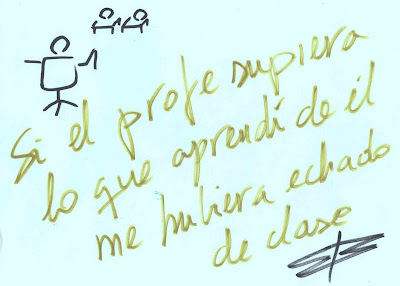 Si el profe supiera
lo que aprendí de él
me hubiera echado
de clase